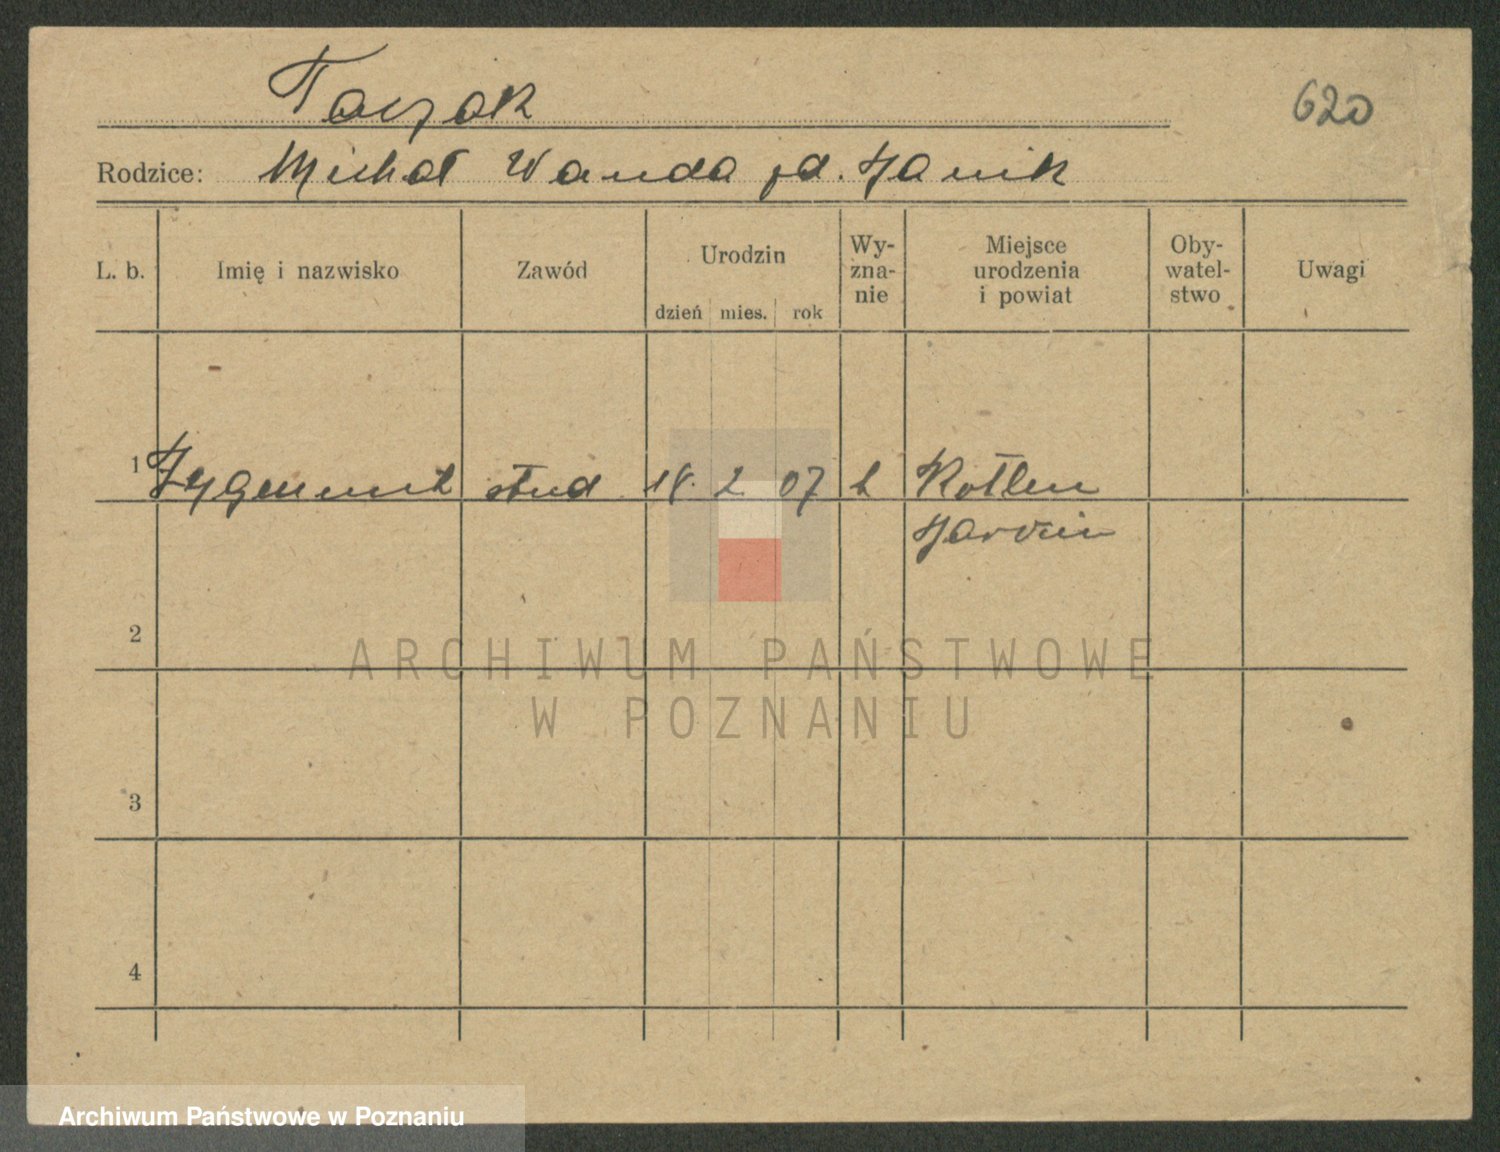 Taczak
620
Rodzice: Michał Wanda zd. Janik
L. b. Imię i nazwisko Zawód Urodzin dzień mies. rok Wy-zna-nie Miejsce urodzenia i powiat Oby-watel-stwo Uwagi
1 Zygmunt stud 18. 2 07 k Kotlin
Jarocin
2
ARCHIWUM PAŃSTWOWE
W POZNANIU
3
4
Archiwum Państwowe w Poznaniu